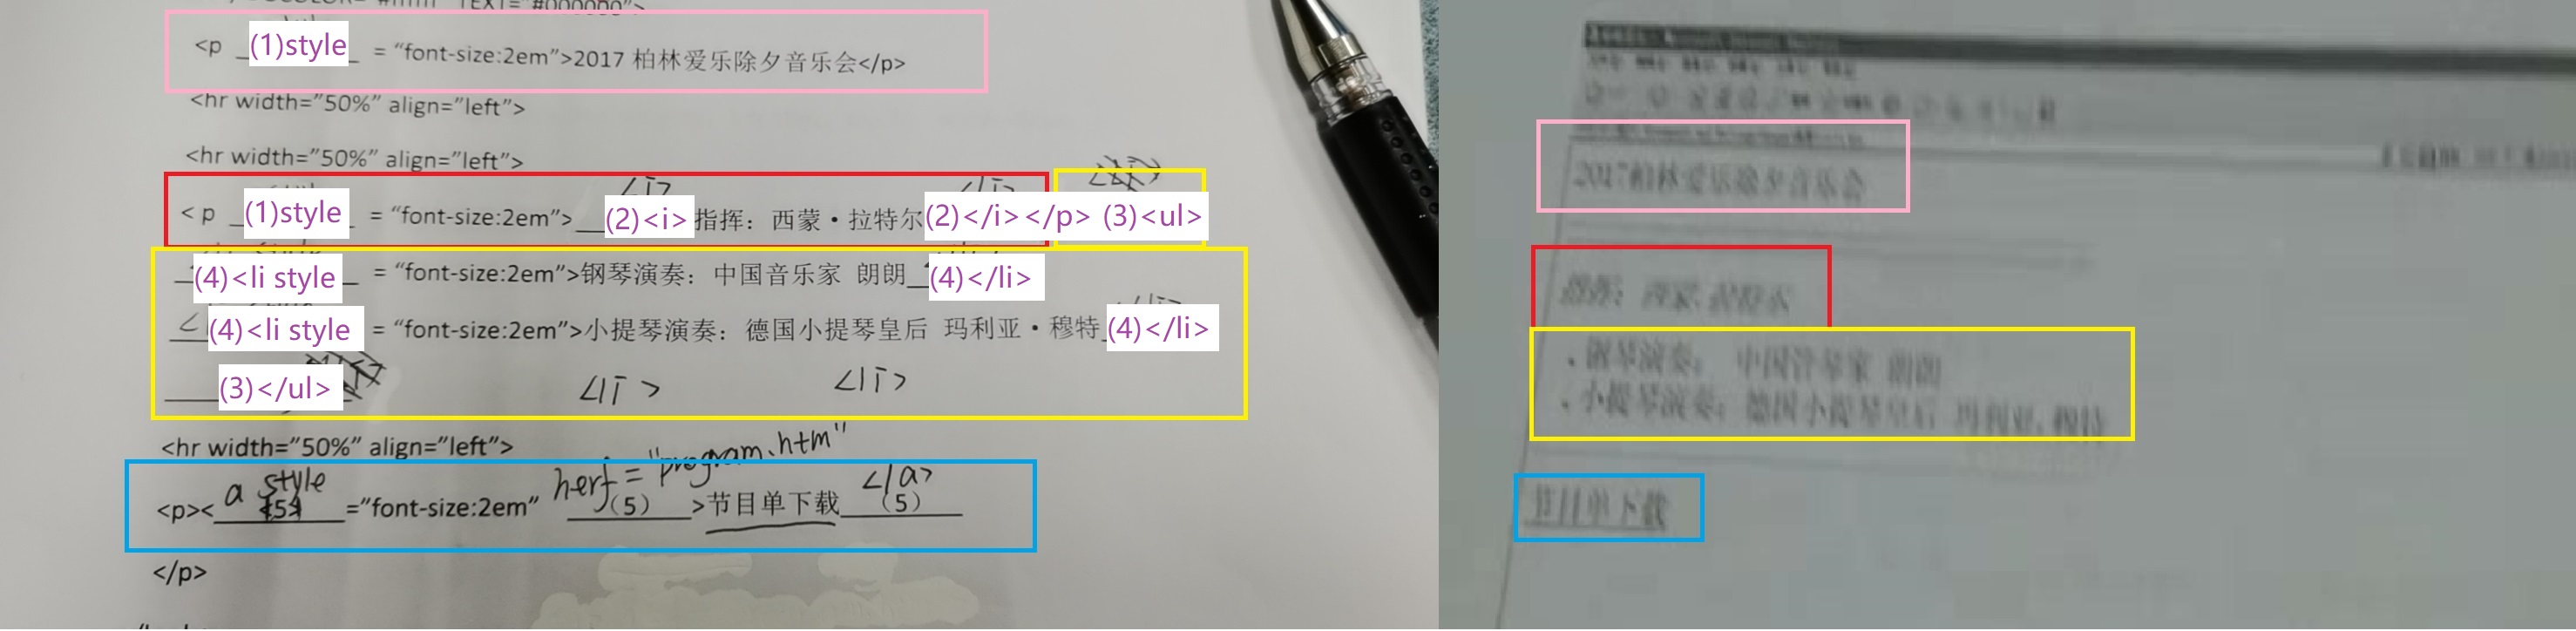 TEXT="#000000">
<p (1)style = “font-size:2em”>2017 柏林爱乐除夕音乐会</p>
<hr width=”50%” align=”left”>
<hr width=”50%” align=”left”>
< p (1)style = “font-size:2em”> (2)<i>指挥：西蒙·拉特尔(2)</i></p> (3)<ul>
(4)<li style = “font-size:2em”>钢琴演奏：中国音乐家 朗朗 (4)</li>
(4)<li style = “font-size:2em”>小提琴演奏：德国小提琴皇后 玛利亚·穆特 (4)</li>
(3)</ul> </li> <li>
<hr width=”50%” align=”left”>
herf="program.htm"
<p>< a style =”font-size:2em” (5) >节目单下载 </a> (5)
</p>
2017柏林爱乐除夕音乐会
指挥：西蒙·拉特尔
·钢琴演奏： 中国音乐家 朗朗
·小提琴演奏：德国小提琴皇后 玛利亚·穆特
节目单下载